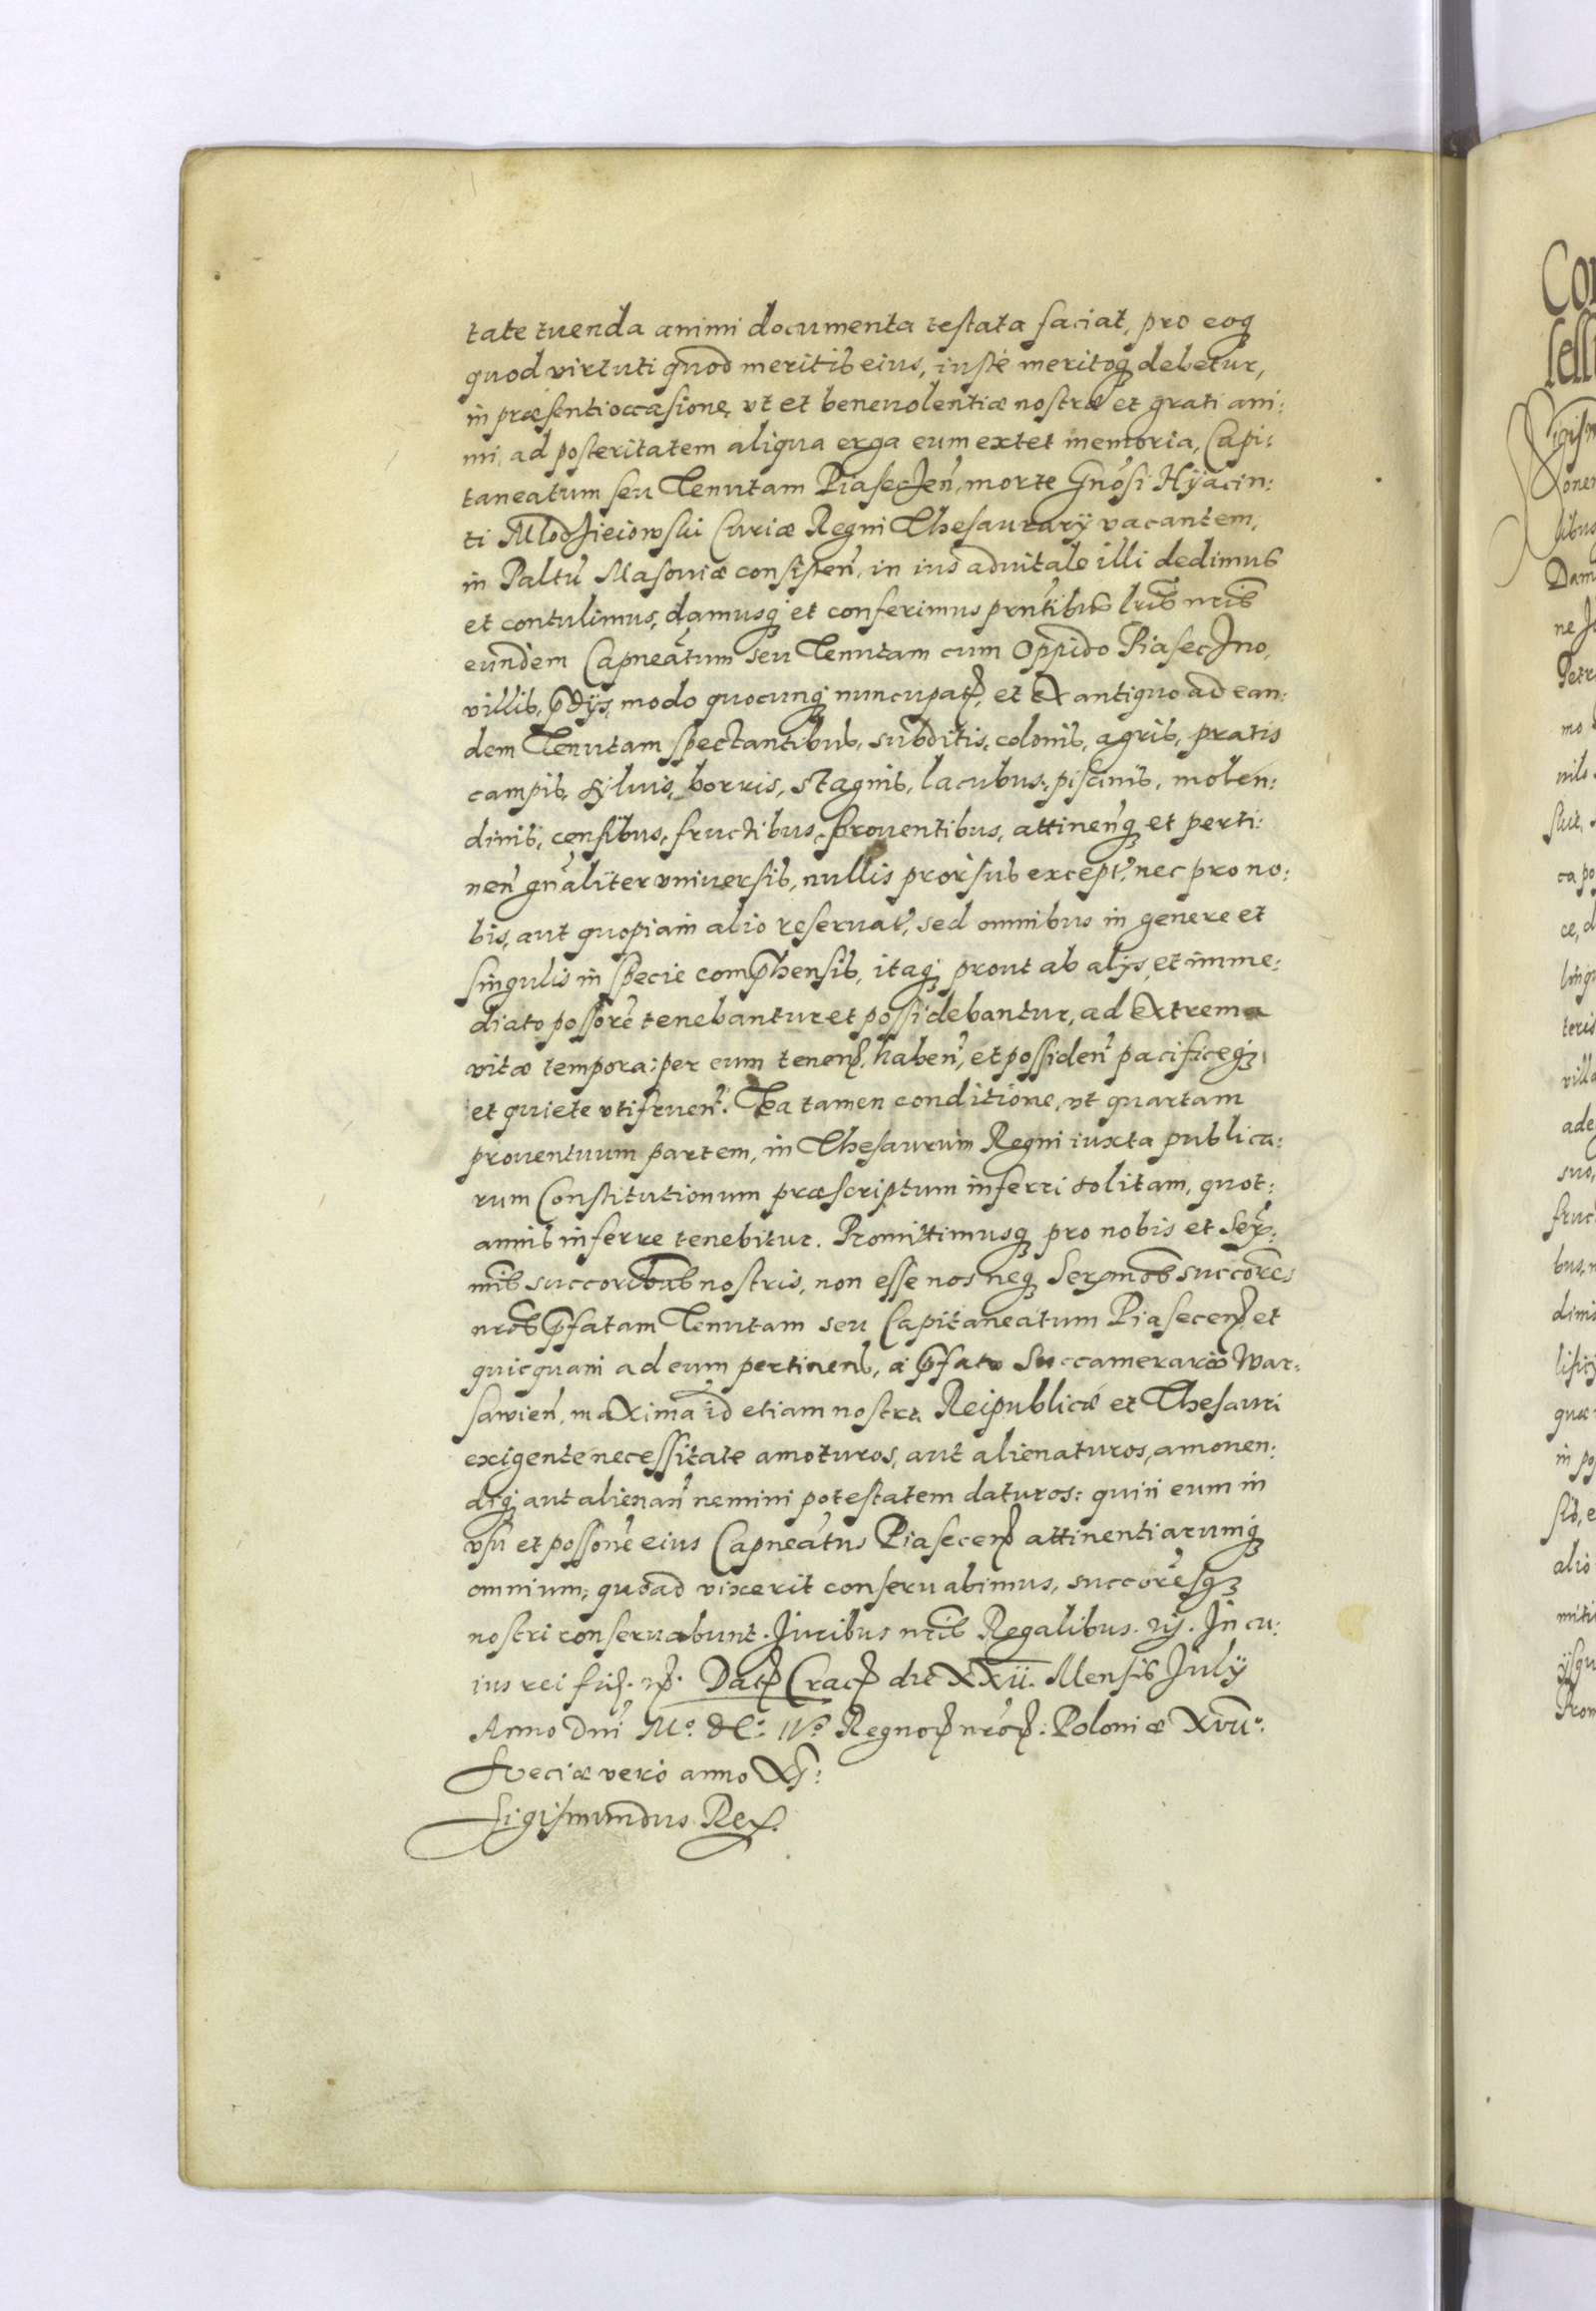 tate tuenda animi documenta testata faciat, pro eoq
quod virtuti quod meritis eius, iuste meritoq debetur,
in præsenti occasione, vt et beneuolentiæ nostræ et grati ani:
mi, ad posteritatem aliqua erga eum extet memoria, Capi:
taneatum seu Tenutam Piaseczen, morte Gnosi Hyacin:
ti Mlodzieiowski Curiæ Regni Thesaurarÿ vacantem,
in Paltu Masouiæ consisten, in ius aduitale illi dedimus
et contulimus, damusq et conferimus prntibus lris nris
eundem Capneatum seu Tenutam cum Oppido Piaseczno,
villis, pdÿs, modo quocunq nuncupat, et ex antiquo ad ean:
dem Tenutam spectantibus, subditis, colonis, agris, pratis
campis, syluis, borris, stagnis, lacubus, piscinis, molen:
dinis, censibus, fructibus, prouentibus, attinenq et perti:
nen gnaliter vniuersis, nullis prorsus except, nec pro no:
bis, aut quopiam alio reseruat, sed omnibus in genere et
singulis in specie comphensis, itaq prout ab alÿs, et imme:
diato possore tenebantur et possidebantur, ad extrema
vitæ tempora: per eum tenen, haben, et possiden pacificeq
et quiete vtifruen. Ea tamen conditione, vt quartam
prouentuum partem, in Thesaurum Regni iuxta publica:
rum Constitutionum præscriptum inferri solitam, quot:
annis inferre tenebitur. Promittimusq pro nobis et Ser:
mis succoribus nostris, non esse nos neq Sermos succores
nros pfatam Tenutam seu Capitaneatum Piasecen et
quicquam ad eum pertinens, a pfato Succamerario War:
sauien, maxima id etiam nostra Reipublicæ et Thesauri
exigente necessitate amoturos, aut alienaturos, amouen:
diq aut alienan nemini potestatem daturos: quin eum in
vsu et possone eius Capneatus Piasecen attinentiarumq
omnium, quoad vixerit conseruabimus, succoresq
nostri conseruabunt. Iuribus nris Regalibus. In cu:
ius rei fid. Dat Crac die XXii. Mensis Julÿ
Anno Dni Mº. DCº. IVº Regnor nror: Poloniæ XVIIº.
Sveciæ vero anno XI:
Sigismundus Rex.